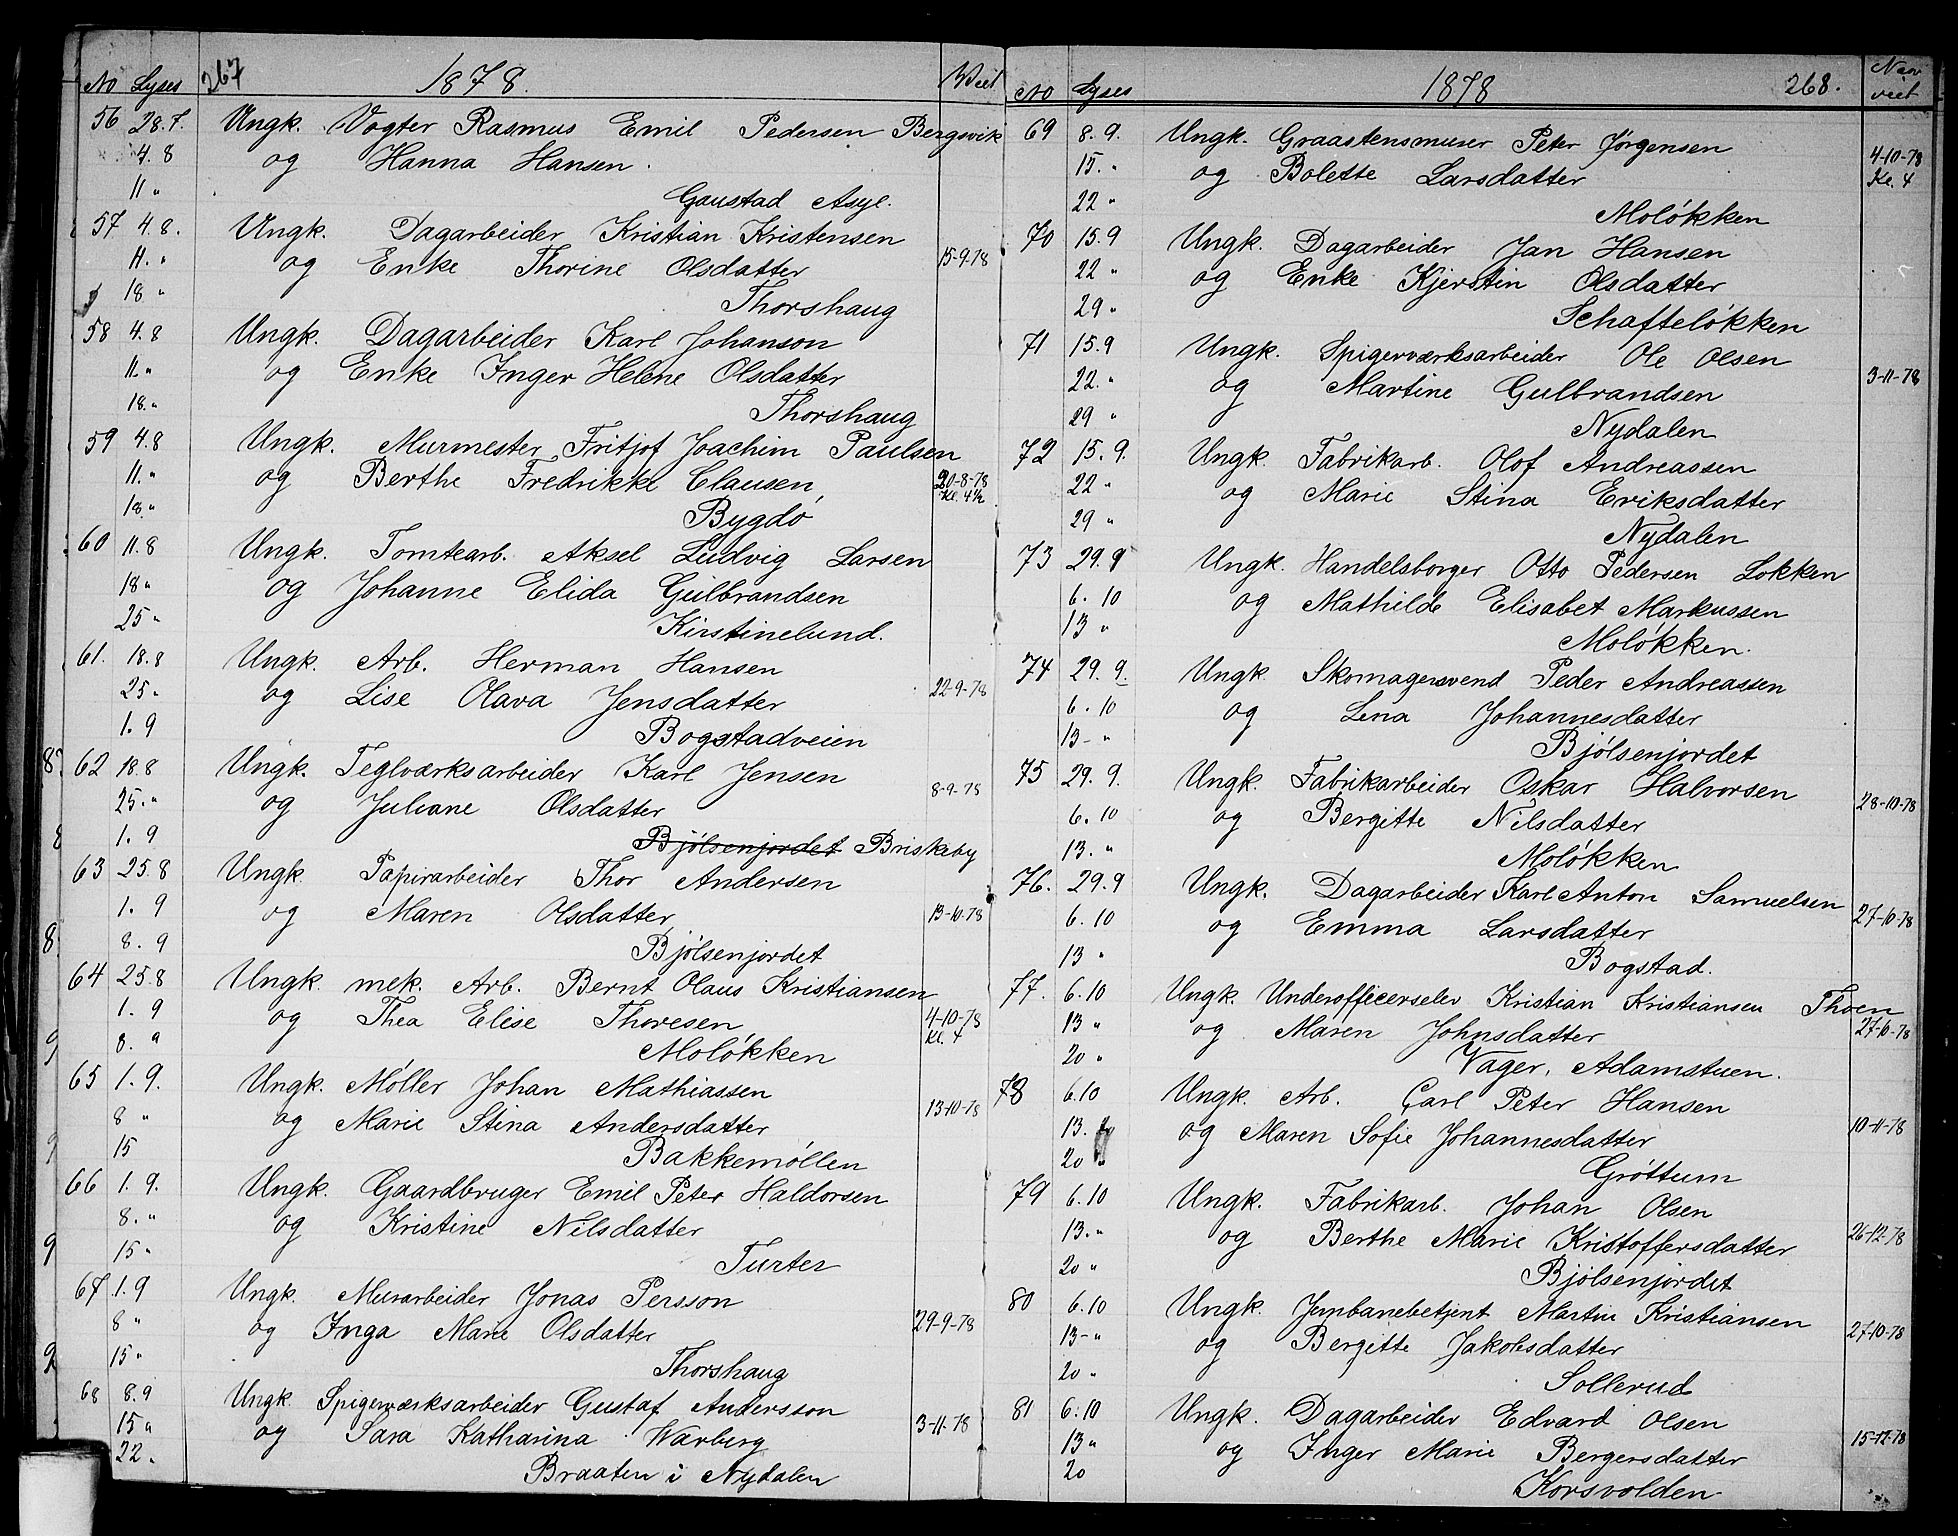 No Lyses 267 1878. Viet
56 28.7. Ungk. Vogter Rasmus Emil Pedersen Bergsvik
4.8 og Hanna Hansen.
11 " Gaustad Asyl.
57 4.8. Ungk. Dagarbeider Kristian Kristensen
11. " og Enke Thorine Olsdatter 15-9-78
18 " Thorshaug
58 4.8 Ungk. Dagarbeider Karl Johanson
11. " og Enke Inger Helene Olsdatter
18. " Thorshaug
59 4.8 Ungk. Murmester Fritjof Joachim Paulsen
11. " og Berthe Fredrikke Clausen, 20-8-78 Kl. 4½
18. " Bygdø
60 11.8 Ungk. Tomtearb. Aksel Ludvig Larsen
18 " og Johanne Elida Gulbrandsen
25 " Kirstinelund.
61. 18.8 Ungk. Arb. Herman Hansen
25 " og Lise Olava Jensdatter 22-9-78
1. 9 Bogstadveien
62 18.8 Ungk. Teglværksarbeider Karl Jensen
25. " og Juliane Olsdatter 8-9-78
1. 9 Bjølsenjordet Briskeby
63 25.8 Ungk. Papirarbeider Thor Andersen
1. 9 og Maren Olsdatter, 13-10-78
8. 9 Bjølsenjordet
64 25.8 Ungk. mek. Arb. Bernt Olaus Kristiansen
1. 9 og Thea Elise Thoresen, 4-10-78 Kl. 4
8. 9 Moløkken
65 1. 9. Ungk. Møller Johan Mathiassen
8 " og Marie Stina Andersdatter 13-10-78
15 Bakkemøllen
66 1. 9. Ungk. Gaardbruger Emil Peter Haldorsen
8. " og Kristine Nilsdatter
15 " Turter
67 1. 9 Ungk. Murarbeider Jonas Persson
8 " og Inga Marie Olsdatter 29-9-78
15 " Thorshaug
68 8.9 Ungk. Spigerværksarbeider Gustaf Andersson
15 " og Sara Katharina Warberg 3-11-78
22 " Braaten i Nydalen
No Lyses 1878 268. Naar viet
69 8. 9. Ungk. Graastensmurer Peter Jørgensen
15. " og Bolette Larsdatter 4-10-78 Kl. 4
22 " Moløkken
70 15.9 Ungk. Dagarbeider Jan Hansen
22 " og Enke Kjerstin Olsdatter
29 " Schafteløkken
71 15.9 Ungk. Spigerværksarbeider Ole Olsen
22. " og Martine Gulbrandsen 3-11-78
29 " Nydalen
72 15. 9. Ungk. Fabrikarb. Olof Andreassen
22 " og Marie Stina Eriksdatter
29 " Nydalen
73 29.9 Ungk. Handelsborger Otto Pedersen Løkken
6. 10 og Mathilde Elisabet Markussen
13 " Moløkken.
74 29. 9. Ungk Skomagersvend Peder Andreassen
6. 10 og Lena Johannesdatter
13- " Bjølsenjordet
75 29. 9. Ungk. Fabrikarbeider Oskar Halvorsen
6. 10 og Bergitte Nilsdatter 28-10-78
13. " Moløkken
76. 29.9 Ungk. Dagarbeider Karl Anton Samuelsen
6. 10 og Emma Larsdatter 27-10-78
13 " Bogstad.
77. 6.10 Ungk. Underofficerselev Kristian Kristiansen Thoen
13 " og Maren Johnsdatter 27-10-78
20 " Vager, Adamstuen.
78 6.10 Ungk. Arb. Carl Peter Hansen
13. og Maren Sofie Johannesdatter 10-11-78
20 " Grøttum
79 6.10 Ungk. Fabrikarb. Johan Olsen
13. " og Berthe Marie Kristoffersdatter 26-12-78
20 " Bjølsenjordet
80 6.10 Ungk. Jernbanebetjent Martin Kristiansen
13- " og Bergitte Jakobsdatter 27-10-78
20 " Sollerud
81 6.10 Ungk. Dagarbeider Edvard Olsen
13 " og Inger Marie Bergersdatter 15-12-78
20 Korsvolden